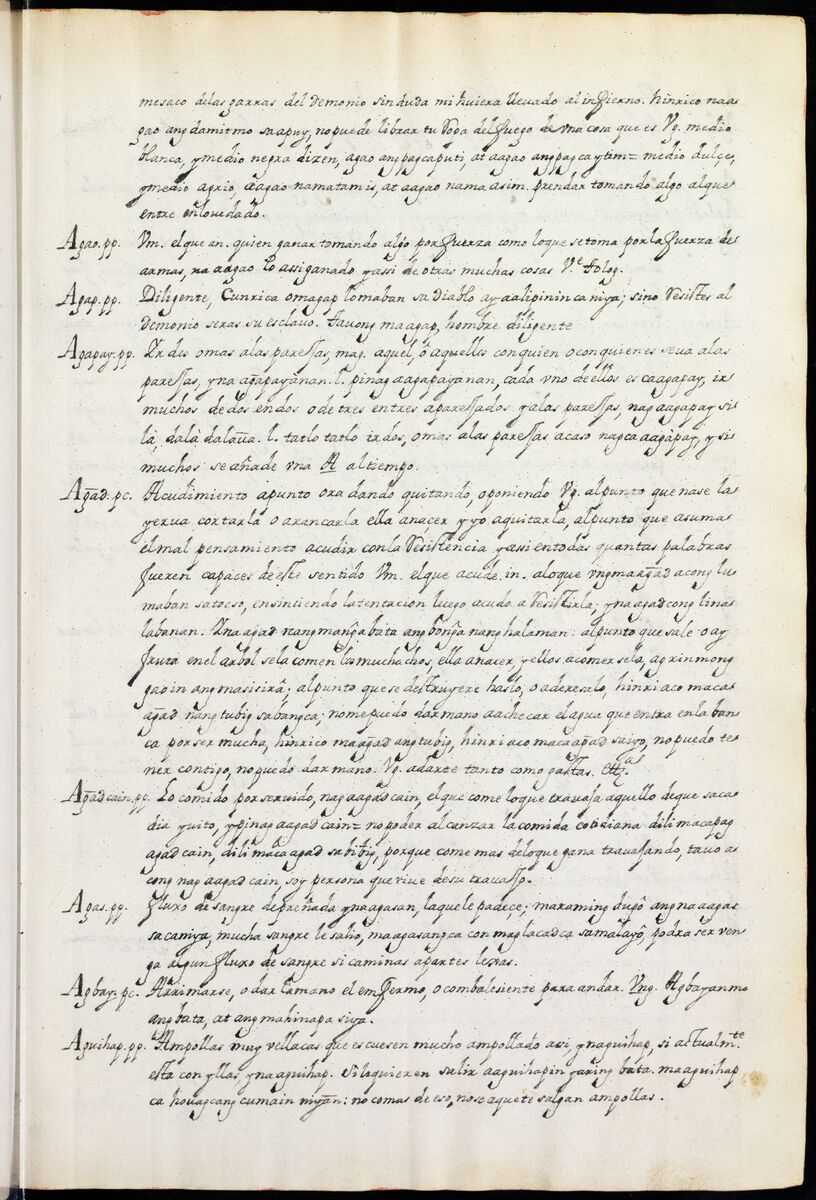 mesaco delas garras del demonio sin duda mi huiera llevado al infierno. hinrico naa
gao ang damitmo sa apuy, no puede librar tu Ropa del fuego de vna cosa que es Vg. medio
blanca, y medio negra dizen, agao ang pagcaputi, at aagao ang pagcaytim = medio dulçe,
y medio agrio, aagao namatamis, at aagao nama asim. prendar tomando algo al que
entre en lo vidado.
Agao. pp. Vm. el que an. quien ganar tomando algo por fuerza como lo que se toma por la fuerza de
aamas, na aagao lo assi ganado y assi de otras muchas cosas V.e Tolog.
Agap. pp. Diligente, Cunrica omagap lomaban sa diablo ay aalipinin caniya; sino Resistes al
Demonio seras su esclavo. tavong maagap, hombre diligente
Agapay. pp. Yr dos o mas alas paressas, mag. aquel, o aquellos con quien o con quienes se va alas
paressas, yna agapayanan. l. pinag aagapayanan, cada vno de ellos es caagapay, ir
muchos de dos en dos o de tres en tres aparessados y alas paressas, nag aagapay si
là, dalà dalaua. l. tatlo tatlo ir dos, o mas alas paressas acaso nagcaaagapay, y si
muchos se añade vna A al tiempo.
Agad. pc. Acudimiento apunto ora dando quitando, o poniendo Vg. al punto que nase la
yerua, cortarla o arancarla ella anaçer y yo aquitarla, al punto que asuma
el mal pensamiento acudir con la Resistencia y assi en todas quantas palabras
fueren capaces de este sentido Vm. el que acude. in. alo que vng maagad acong lu
maban sa tocso, en sintiendo la tentacion luego acudo a Resistirla; yna agad cong lina
labanan. Yna agad nang manga bata ang bonga nang halaman: al punto que sale o ay
fruta en el arbol se la comen los muchachos, ella anacer, y ellos acomersela, agrin mong
gaoin ang masisira; al punto que se destruyere haslo, o aderesalo, hinri aco maca
agad nang tubig sa bangca; nome puedo dar mano a achecar el agua que entra en la ban
ca por ser mucha, hinrico maagad ang tubig, hinri aco maca agad saiyo, no puedo te
ner contigo, no puedo dar mano. Vg. adarte tanto como gastas. Ett.as
Agadcain. pc. Lo comido por seruido, nag aagad cain, el que come lo que travaja aquello de que saca
dia y vito, ypinag aagad cain = no poder alcanzar la comida cotidiana dili macapag
agad cain, dili maca agad sa bibig, porque come mas delo que gana travajando, tavo a
cong nag aagad cain, soy persona que vive de su travajo.
Agas. pp. Fluxo de sangre de preñada ynaagasan, la que le padeçe; maraming dugo ang naaagas
sa caniya, mucha sangre le salio, maagasangca con maglacadca sa malayo, podra ser ven
ga algun fluxo de sangre si caminas apartes lexas.
Agbay. pc. Arrimarse, o dar la mano el enfermo, o combalesiente para andar. Vng. Agbayanmo
ang bata, at ang mahinapa siya.
Aguihap. pp. Ampollas muy vellacas que escuesen mucho ampollado asi, ynaguihap, si actualm.te
esta con yllas, ynaaguihap. si la quieren salir aaguihapin yaring bata. maaguihap
ca houagcang cumain niyan: no comas de eso, no sea que te salgan ampollas.